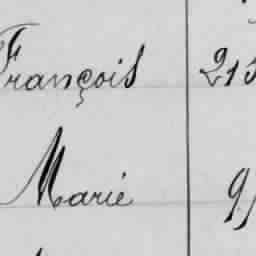 François 215
Marie 9